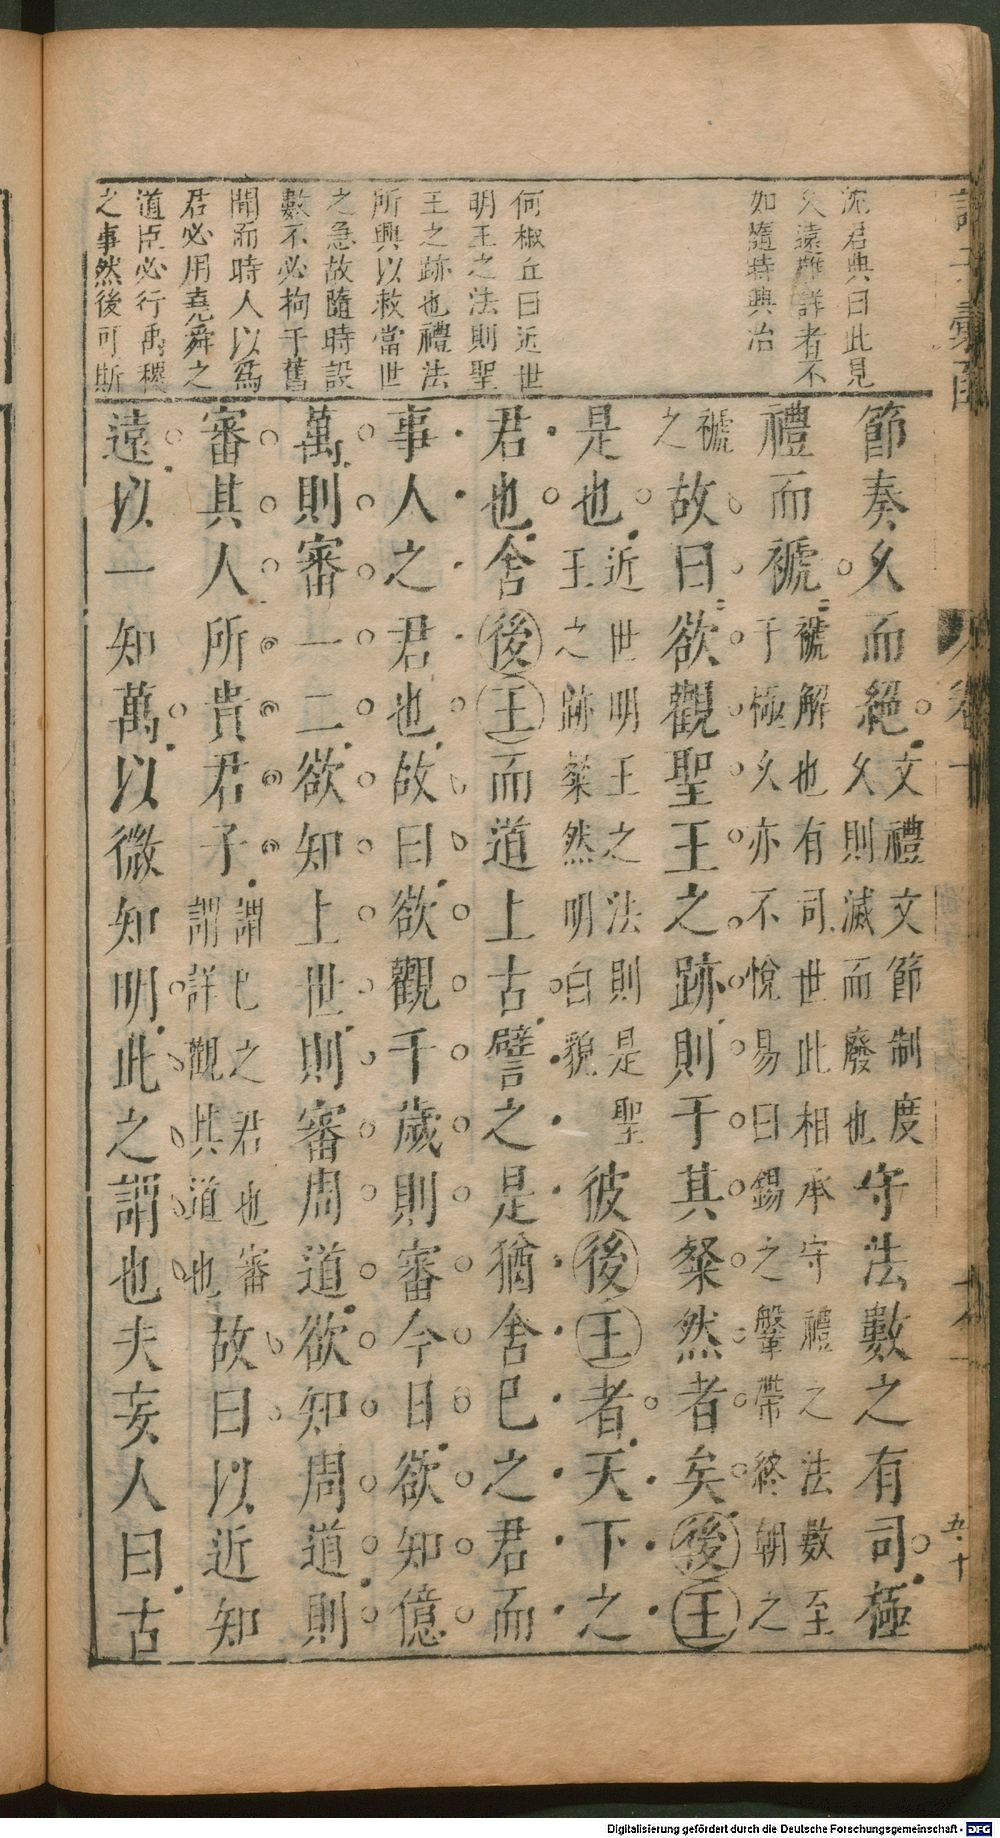 沈君典曰此見
久遠難詳者不
如隨時興治
何椒丘曰近世
明王之法則聖
王之跡也禮法
所興以救當世
之急故隨時設
數不必拘于舊
聞而時人以爲
君必用堯舜之
道臣必行禹稷
之事然後可斯
節奏久而絕文禮文節制度久則滅而廢也守法數之有司極
禮而褫褫解也有司世世相承守禮之法數至于極久亦不悅易曰錫之鞶帶終朝之
褫之故曰欲觀聖王之跡則于其粲然者矣後王
是也近世明王之法則是聖王之跡粲然明白貌彼後王者天下之
君也舍後王而道上古譬之是猶舍己之君而
事人之君也故曰欲觀千歲則審今日欲知億
萬則審一二欲知上世則審周道欲知周道則
審其人所貴君子謂己之君也審謂詳觀其道也故曰以近知
遠以一知萬以微知明此之謂也夫妄人曰古
五十
Digitalisierung gefördert durch die Deutsche Forschungsgemeinschaft - DFG